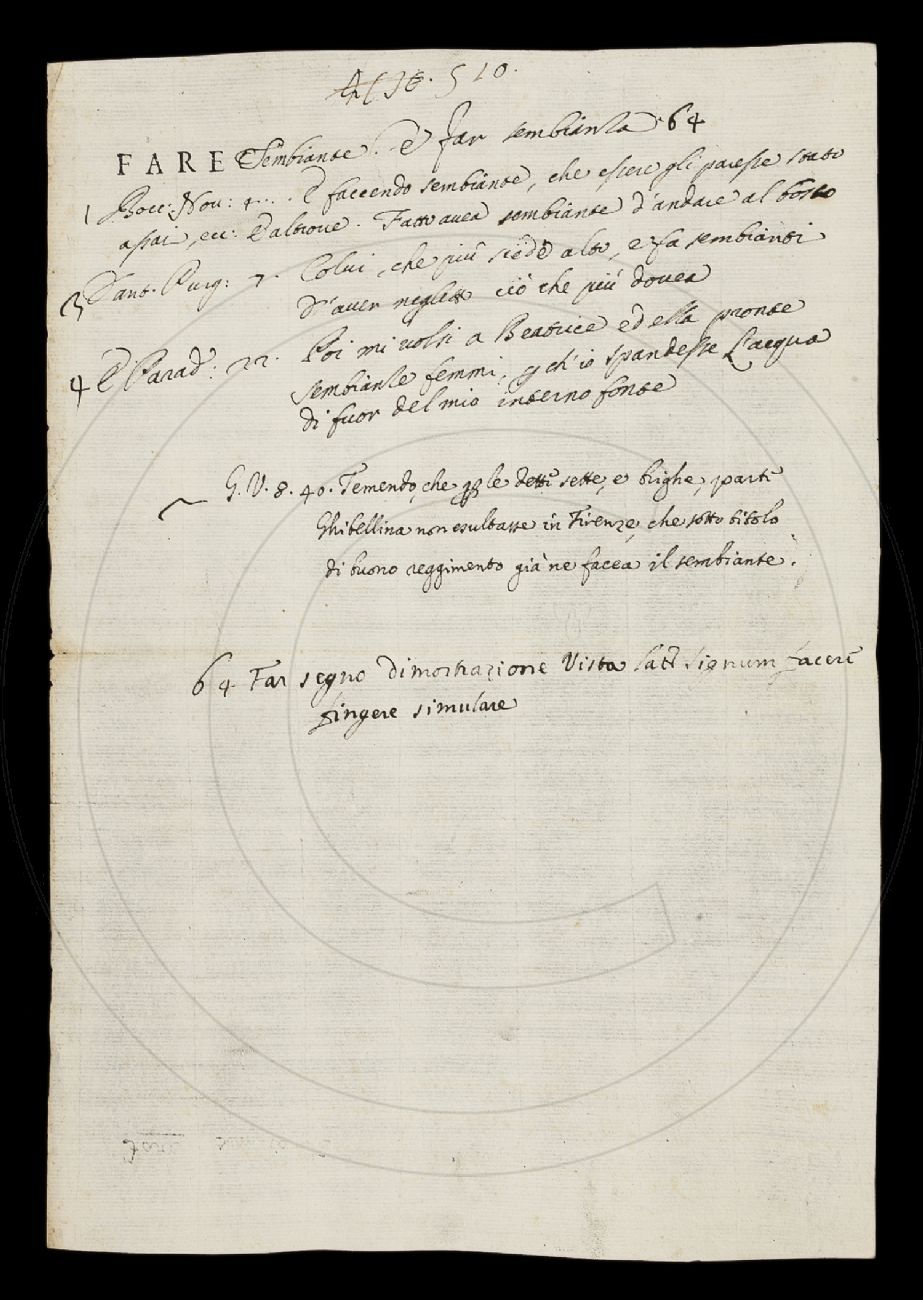 510.
FARE Sembiante. e far sembianza 64
1 Bocc: Nov: 4... E faccendo sembiante, che essere gli paresse stato
assai, ecc: E altrove. Fatto avea sembiante d'andare al bosco
3 Dant. Purg: 7. Colui, che più siede alto, e fa sembianti
D'aver negletto ciò che più dovea
4 E Parad: 22. Poi mi volsi a Beatrice ed essa pronte
sembianze femmi, ch'io spandesse L'acqua
di fuor del mio interno fonte
G. V. 8. 40. Temendo, che le dette sette, e brighe, parte
Ghibellina non esultasse in Firenze, che sotto titolo
di buono reggimento già ne facea il sembiante.
64. Far segno dimostrazione Vista latt signum facere
fingere simulare